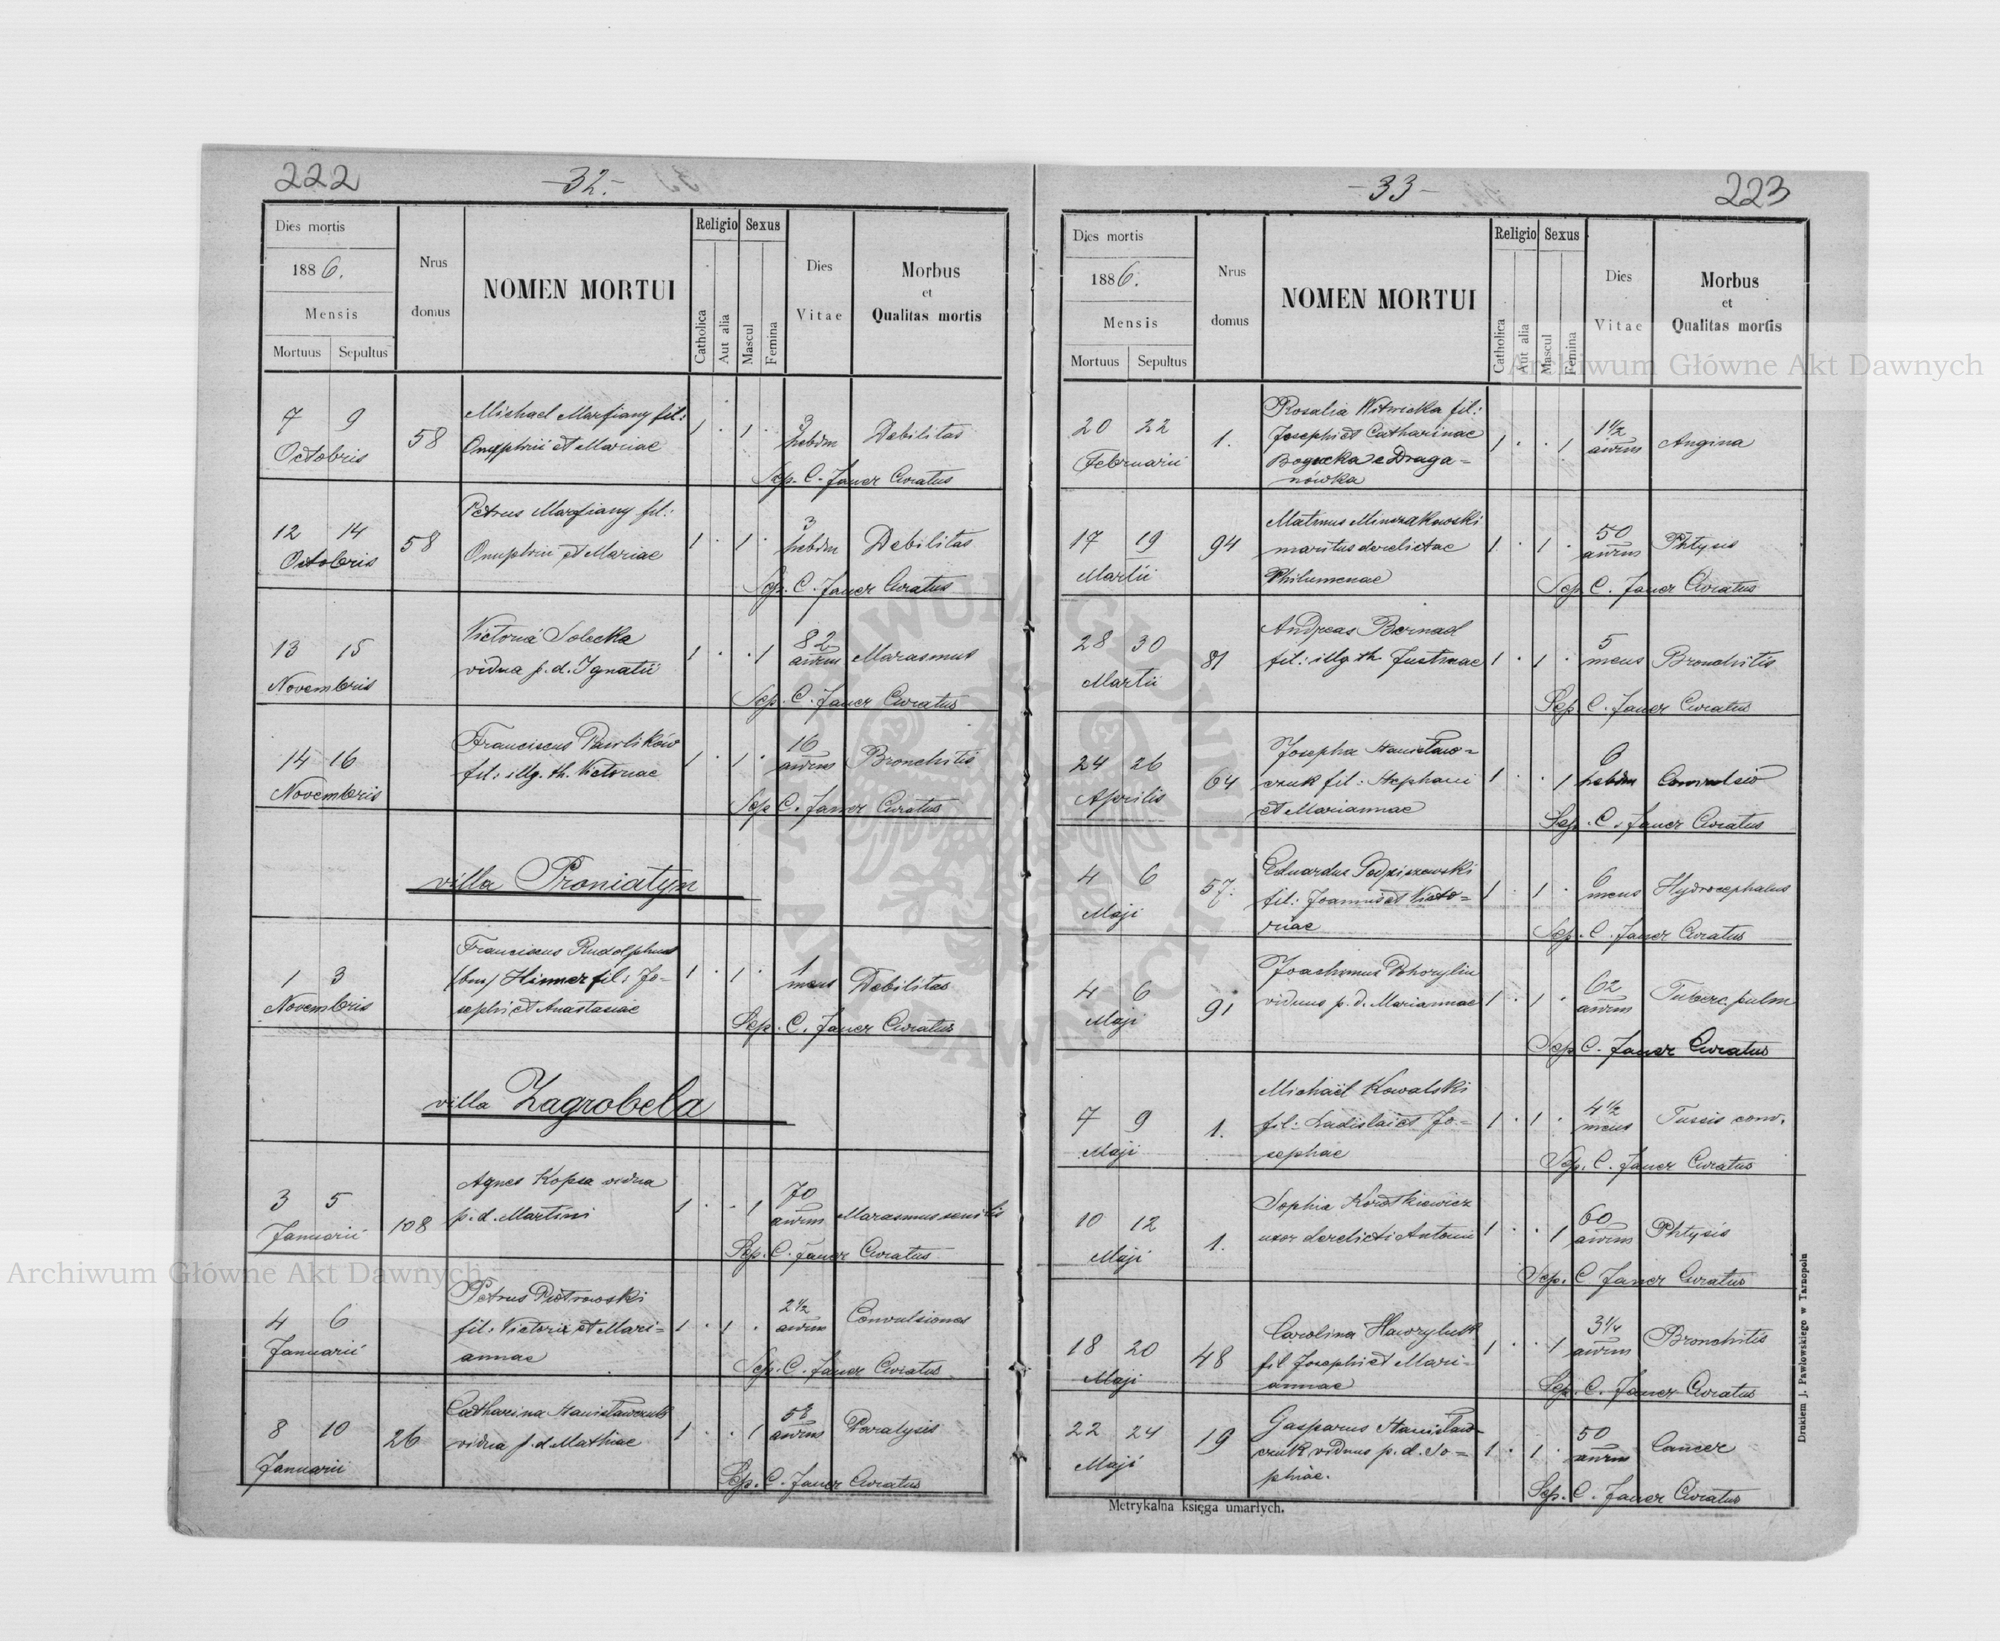 222
-32.-
Dies mortis
1886.
Mensis
Mortuus Sepultus
Nrus domus
NOMEN MORTUI
Religio
Catholica
Aut alia
Sexus
Mascul
Femina
Dies Vitae
Morbus
et
Qualitas mortis
7 9
Octobris
58
Michael fil:
Onuphrii et Mariae
1 . 1 .
3
hebdm
Debilitas
Sep. C. Janer Curatus
12 14
Octobris
58
Petrus fil:
Onuphrii et Mariae
1 . 1 .
3
hebdm
Debilitas
Sep. C. Janer Curatus
13 15
Novembris
Victoria Solecka
vidua p. d. Ignatii
1 . . 1
82
annm
Marasmus
Sep. C. Janer Curatus
14 16
Novembris
Franciscus Pawlików
fil: illg. th. Victoriae
1 . 1 .
16
annm
Bronchitis
Sep C. Janer Curatus
villa Proniatyn
1 3
Novembris
Franciscus Rudolphus
(bin) Himmer fil: Jo-
sephi et Anastasiae
1 . 1 .
1
mens
Debilitas
Sep. C. Janer Curatus
villa Zagrobela
3 5
Januarii
108
Agnes Kopsa vidua
p. d. Martini
1 . . 1
70
annm
Marasmus senilis
Sep. C. Janer Curatus
4 6
Januarii
Petrus Piotrowski
fil: Victoris et Mari-
annae
1 . 1 .
2 1/2
annm
Convulsiones
Sep. C. Janer Curatus
8 10
Januarii
26
Catharina Stanisławczuk
vidua p. d. Mathiae
1 . . 1
58
annm
Paralysis
Sep. C. Janer Curatus
-33-
223
Dies mortis
1886.
Mensis
Mortuus Sepultus
Nrus domus
NOMEN MORTUI
Religio
Catholica
Aut alia
Sexus
Mascul
Femina
Dies Vitae
Morbus
et
Qualitas mortis
20 22
Februarii
1.
Rosalia Witwicka fil:
Josephi et Catharinae
Bogucka e Draga-
nówka
1 . . 1
1 1/2
annm
Angina
17 19
Martii
94
Minczakowski
maritus derelictae
Philumenae
1 . 1 .
50
annm
Phtysis
Sep C. Janer Curatus
28 30
Martii
81
Andreas Bernad
fil: illg. th. Justinae
1 . 1 .
5
mens
Bronchitis
Sep C. Janer Curatus
24 26
Aprilis
64
Josepha Stanisław-
czuk fil: Stephani
et Mariannae
1 . . 1
6
hebdm
Convulsio
Sep. C. Janer Curatus
4 6
Maji
57.
Eduardus Podpiszewski
fil: Joannis et Victo-
riae
1 . 1 .
6
mens
Hydrocephalus
Sep. C. Janer Curatus
4 6
Maji
91
Joachimus Pohorylin
viduus p. d. Mariannae
1 . 1 .
62
annm
Tuberc. pulm
Sep C. Janer Curatus
7 9
Maji
1.
Michaël Kowalski
fil: Ladislai et Jo-
sephae
1 . 1 .
4 1/2
mens
Tussis conv.
Sep. C. Janer Curatus
10 12
Maji
1.
Sophia Korotkiewicz
uxor derelicti Antonii
1 . . 1
60
annm
Phtysis
Sep. C Janer Curatus
18 20
Maji
48
Carolina Hawryluk
fil Josephi et Mari-
annae
1 . . 1
3 1/4
annm
Bronchitis
Sep. C. Janer Curatus
22 24
Maji
19
Gasparus Stanisław-
czuk viduus p. d. So-
phiae.
1 . 1 .
50
annm
Cancer
Sep. C. Janer Curatus
Metrykalna księga umarłych.
Drukiem J. Pawłowskiego w Tarnopolu
Archiwum Główne Akt Dawnych
Archiwum Główne Akt Dawnych
ARCHIWUM GŁÓWNE AKT DAWNYCH